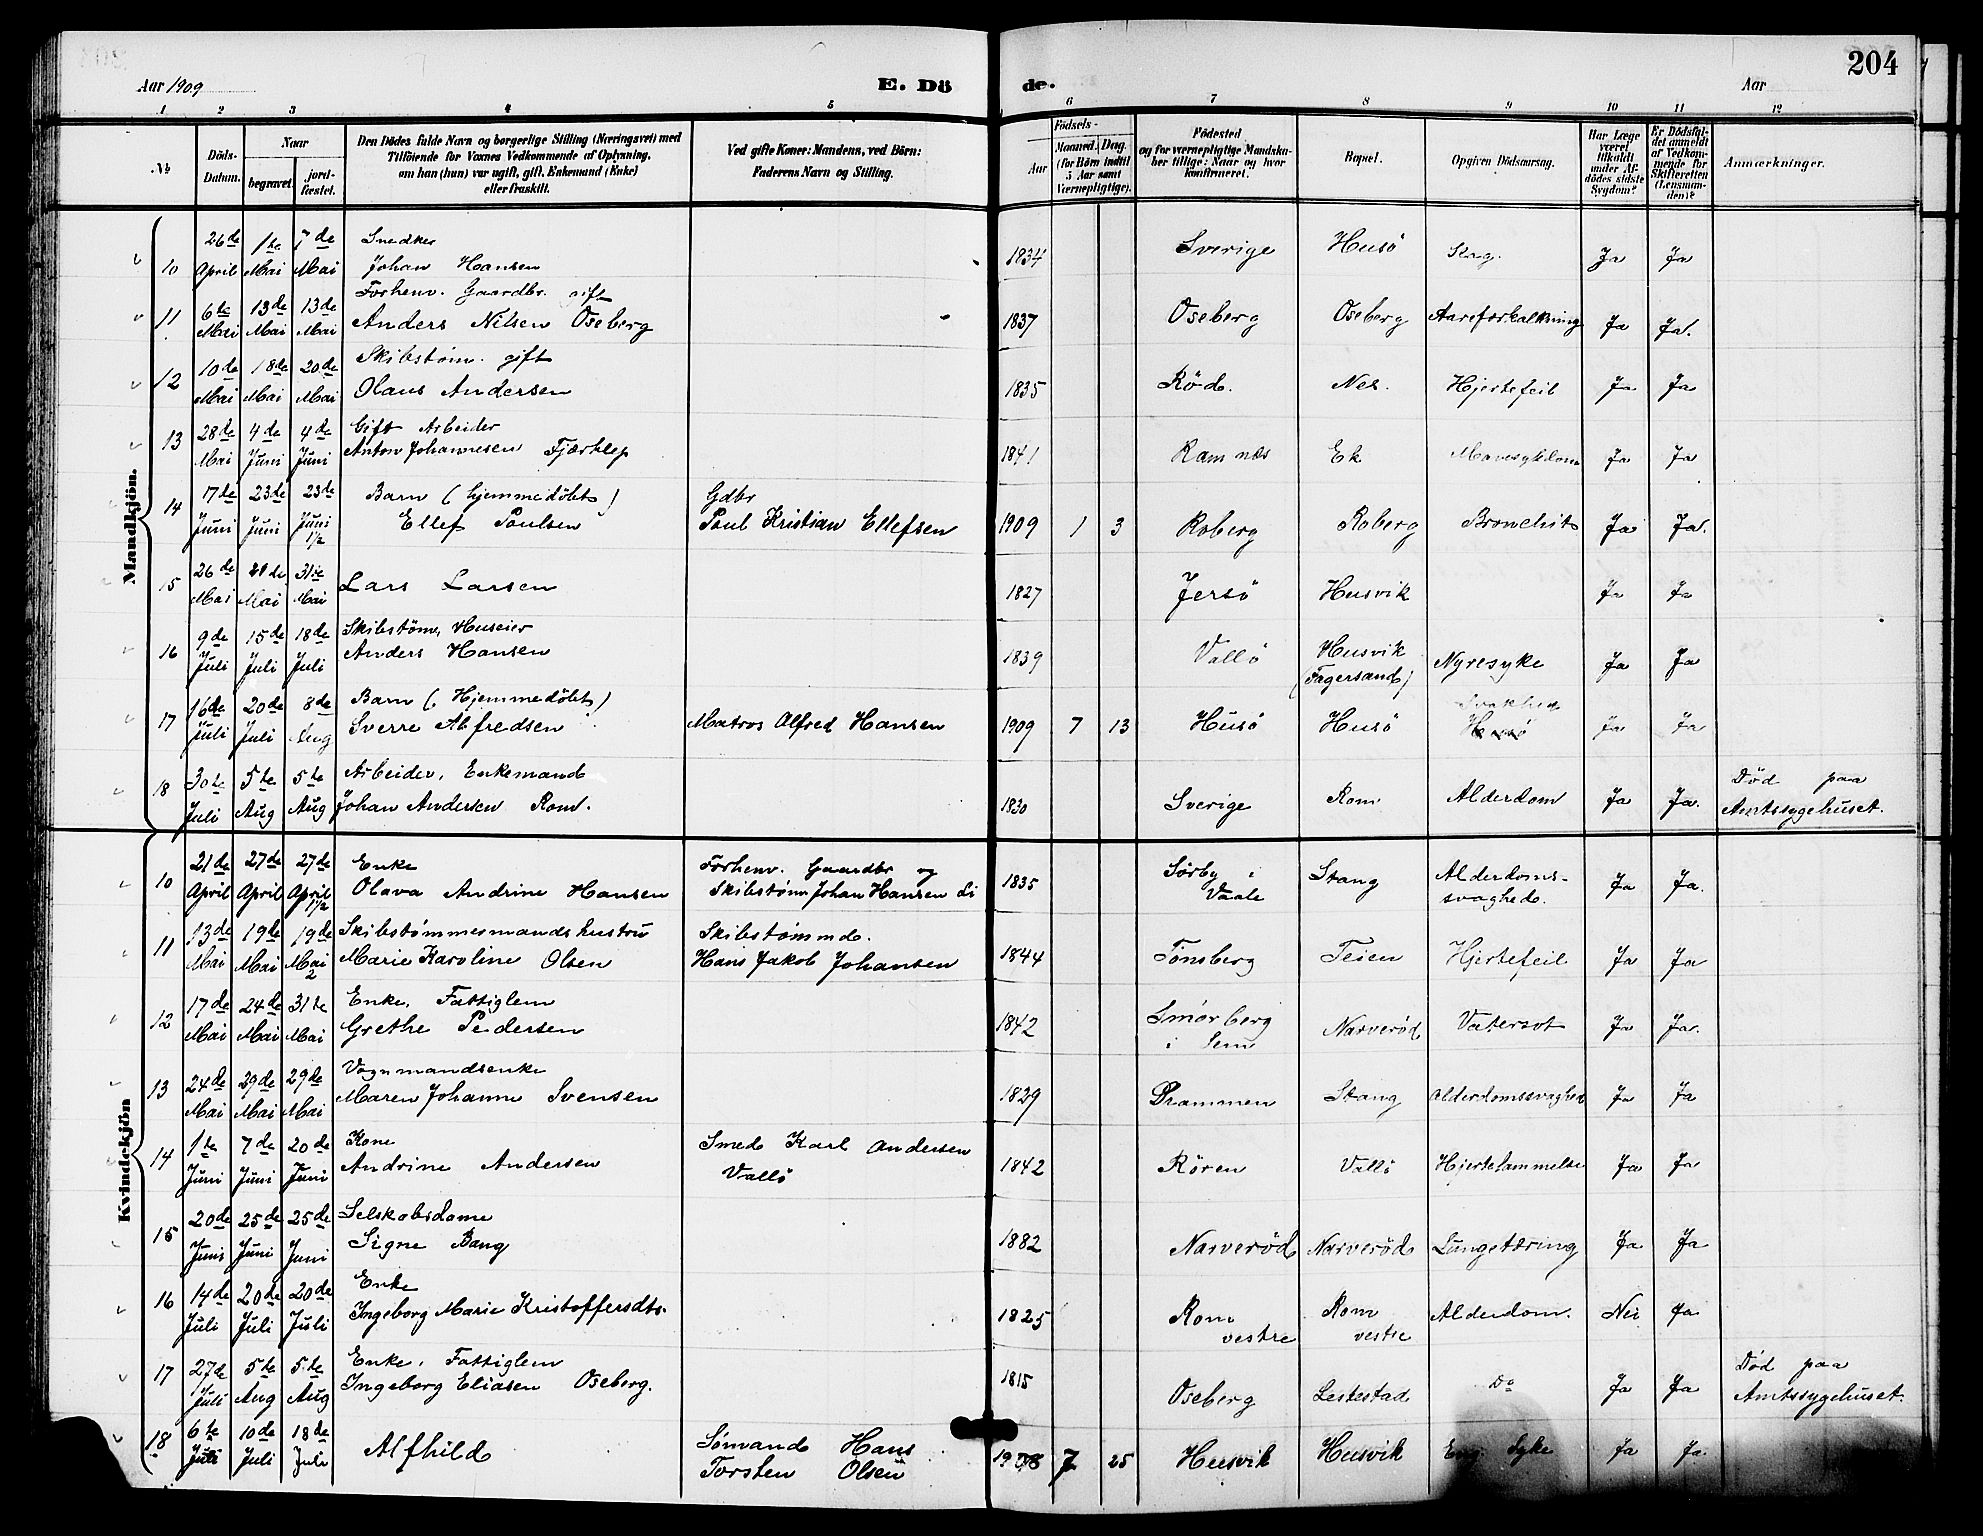 204
Aar 1909
E. Dö
de.
Aar
1 2 3 4 5 6 7 8 9 10 11 12
No
Döds-Datum.
Naar
begravet.
jord-fæstet.
Den Dödes fulde Navn og borgerlige Stilling (Næringsvei) med
Tilföiende for Voxnes Vedkommende af Oplysning,
om han (hun) var ugift, gift, Enkemand (Enke)
eller fraskilt.
Ved gifte Koner: Mandens, ved Börn:
Faderens Navn og Stilling.
Födsels-
Aar
Maaned. Dag.
(for Börn indtil
5 Aar samt
Værnepligtige).
Födested
og for værnepligtige Mandska-
ber tillige: Naar og hvor
konfirmeret.
Bopæl.
Opgiven Dödsaarsag.
Har Læge
været
tilkaldt
under Af-
dödes sidste
Sygdom?
Er Dödsfal-
det anmeldt
af Vedkom-
mende for
Skifteretten
(Lensman-
den)?
Anmærkninger.
Mandkjön.
26de 1te 7de Snedker
10 April Mai Mai Johan Hansen 1834 Sverige Husö Slag. Ja Ja
Forhenv. Gaardbr. gift
11 6te Mai 13de Mai 13de Mai Anders Nilsen Oseberg 1837 Oseberg Oseberg Aareforkalkning Ja Ja.
Skibstøm. gift
12 10de Mai 18de Mai 20de Mai Olaus Andersen 1835 Röd. Nes. Hjertefeil Ja Ja
Gift Arbeider
13 28de Mai 4de Juni 4de Juni Anton Johannesen Fjærklep 1841 Ramnæs Ek Mavesygdom Ja Ja
Barn (hjemmedöbt) Gdbr
14 17de Juni 23de Juni 23de Juni 1/2 Ellef Paulsen Paul Kristian Ellefsen 1909 1 3 Roberg Roberg Bronchit Ja Ja.
15 26de Mai 31te Mai Lars Larsen 1827 Jersö Husvik Ja Ja
Skibstøm, Huseier
16 9de Juli 15de Juli 18de Juli Anders Hansen 1839 Vallö Husvik (Fagersand) Nyresyke Ja Ja
Barn (Hjemmedöbt) Svakhed
17 16de Juli 20de Juli 8de Aug Sverre Alfredsen Matros Alfred Hansen 1909 7 13 Husö Husö Husö Ja Ja
Arbeider, Enkemand
18 30te Juli 5te Aug 5te Aug Johan Andersen Rom. 1830 Sverige Rom Alderdom Ja Ja. Död paa Amtssygehuset.
Kvindekjön
Enke Forhenv. Gaardbr og
10 21de April 27de April 27de April 1/2 Olava Andrine Hansen Skibstøm Johan Hansen Li 1835 Sörby i Vaale Stang Alderdoms-svaghed. Ja Ja.
Skibstømmesmandshustru Skibstømmd.
11 13de Mai 19de Mai 19de Mai 2 Marie Karoline Olsen Hans Jakob Johansen 1844 Tønsberg Teien Hjertefeil Ja Ja
Enke, Fattiglem
12 17de Mai 24de Mai 31te Mai Grethe Pedersen 1842 Smörberg i Sem Narveröd Vatersot Ja Ja.
Vognmandsenke
13 24de Mai 29de Mai 29de Mai Maren Johanne Svensen 1829 Drammen Stang Alderdomssvaghed Ja Ja
Kone Smed Karl Andersen
14 1te Juni 7de Juni 20de Juni Andrine Andersen Vallö 1842 Rören Vallö Hjertelammelse Ja Ja
Selskabsdame
15 20de Juni 25de Juni 25de Juni Signe Bang 1882 Narveröd Narveröd Lungetæring Ja Ja
Enke
16 14de Juli 20de Juli 20de Juli Ingeborg Marie Kristoffersdts. 1825 Rom vestre Rom vestre Alderdom. Nei Ja
Enke, Fattiglem
17 27de Juli 5te Aug 5te Aug Ingeborg Eliasen Oseberg. 1815 Oseberg Lestestad Do Ja Ja Död paa Amtssygehuset.
18 6te Juli 10de Juli 18de Juli Alfhild Sömand Hans Torsten Olsen 1908 7 25 Husvik Husvik Syke Ja Ja